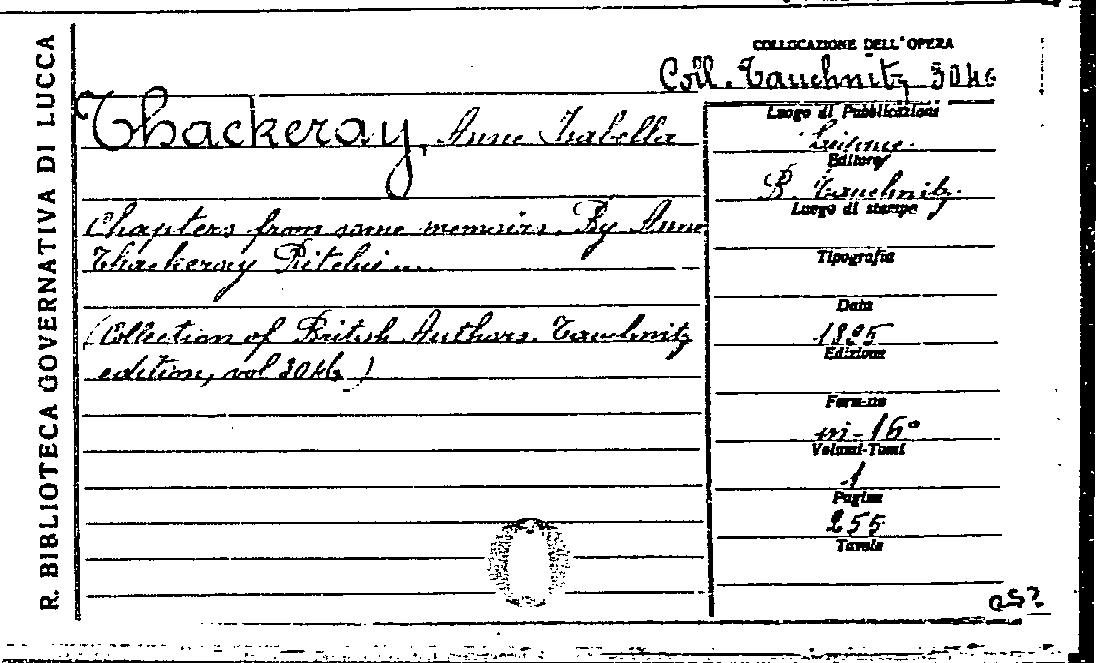 R. BIBLIOTECA GOVERNATIVA DI LUCCA
COLLOCAZIONE DELL'OPERA
Coll. Tauchnitz 3046
Thackeray, Anne Isabella
Chapters from some memoirs. By Anne
Thackeray Ritchie
(Collection of British Authors. Tauchnitz
edition, vol 3046)
Luogo di Pubblicazioni
Editore
B. Tauchnitz.
Luogo di stampa
Tipografia
Data
1895
Edizione
Formato
in-16°
Volumi-Tomi
1
Pagine
255
Tavole